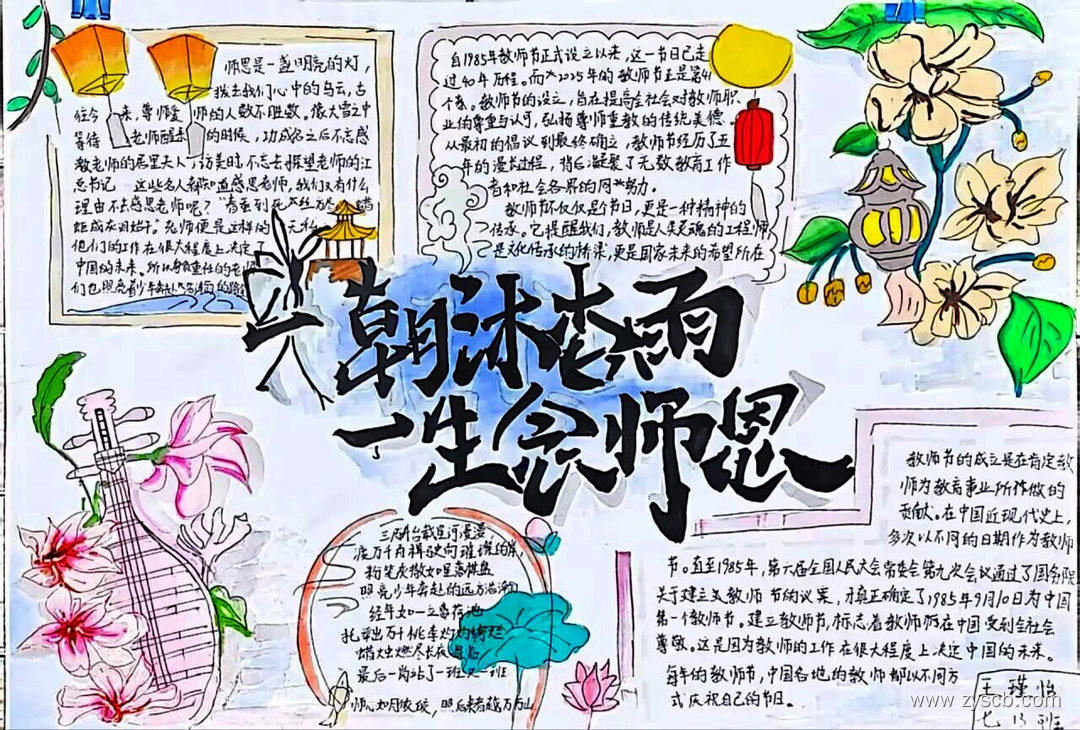 师恩是一盏明亮的灯，
拨去我们心中的乌云，古
往今来，尊师爱师的人数不胜数。像大雪之中
等待老师醒来的时候，功成名之后不忘感
教老师的居里夫人 访美时不忘去探望老师的江
总书记 这些名人都知道感恩老师，我们又有什么
理由不去感恩老师呢？"春蚕到死 蜡
炬成灰泪始干。老师便是这样的 无私
他们的工作在很大程度上决定了
中国的未来。所以身负重任的老师
们也照亮着少年
自1985年教师节正式设立以来，这一节日已走
过40年历程。而 2025年的教师节正是第41
个。教师节的设立，旨在提高全社会对教师职
业的尊重与认可，弘扬尊师重教的传统美德。
从最初的倡议到最终确立，教师节经历了五
年的漫长过程，背后凝聚了无数教育工作
者和社会各界的同 努力。
教师节不仅仅是节日，更是一种精神的
传承。它提醒我们，教师是人类灵魂的工程师
是文化传承的桥梁，更是国家未来的希望所在
一朝沐杏雨
一生念师恩
三尺讲台截星河漫漫
渡万千舟楫驶向璀璨的岸
粉笔灰散如星落棋盘
照亮少年奔赴的远方浩瀚
经年如一立着荷池
托举出万千桃李灼灼绚烂
蜡炬燃尽长夜
最后一岗站了一班又一班
师心如月皎皎，照后来者越万山
教师节的成立是在肯定教
师为教育事业所作做的
贡献。在中国近现代史上，
多次以不同的日期作为教师
节。直至1985年，第六届全国人民大会常委会第九次会议通过了国务院
关于建立义教师 节的议案，才真正确定了1985年9月10日为中国
第一个教师节。建立教师节，标志着教师师在中国受到全社会
尊敬。这是因为教师的工作在很大程度上决定中国的未来。
每年的教师节，中国各地的教师都以不同方
式庆祝自己的节日。
王瑾怡
七13班
www.zyscb.com